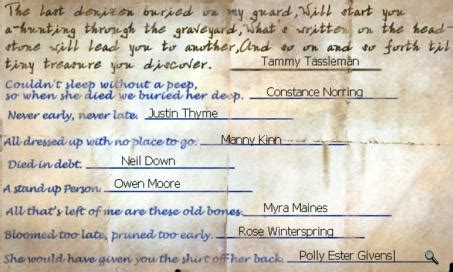 The last denizen buried on my guard, Will start you
a-hunting through the graveyard, What's written on the head-
stone will lead you to another, And so on and so forth til
tiny treasure you discover. Tammy Tassleman
Couldn't sleep without a peep,
so when she died we buried her deep. Constance Norring
Never early, never late. Justin Thyme
All dressed up with no place to go. Manny Kinn
Died in debt. Neil Down
A stand up Person. Owen Moore
All that's left of me are these old bones. Myra Maines
Bloomed too late, pruned too early. Rose Winterspring
She would have given you the shirt off her back. Polly Ester Givens